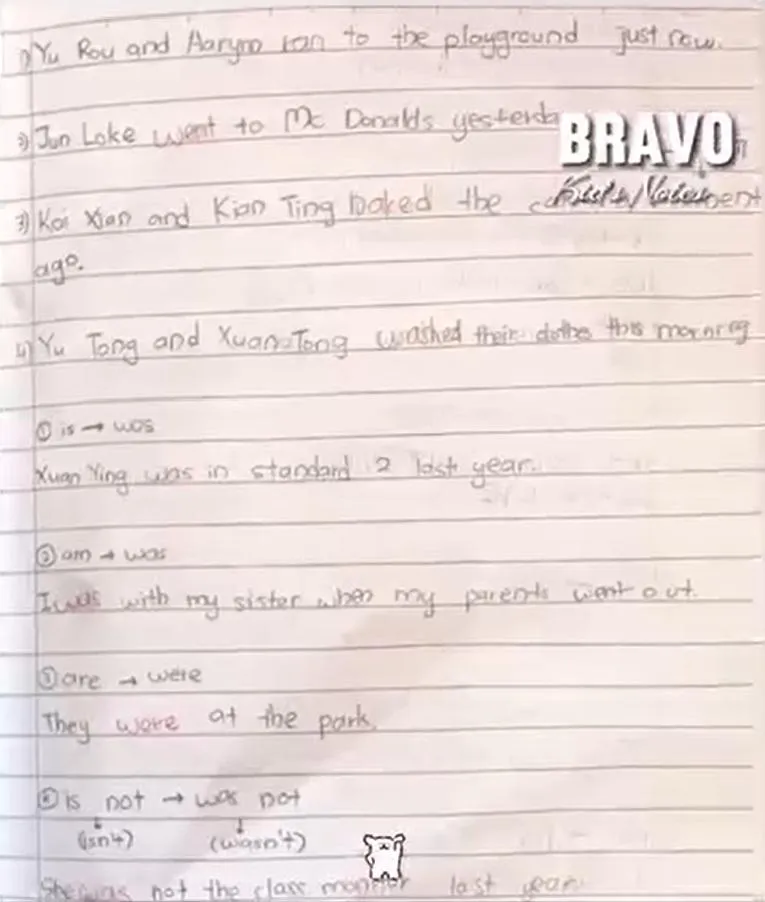 1) Yu Rou and Aaryan ran to the playground just now.
2) Jun Loke went to Mc Donalds
BRAVO
3) Kai Xian and Kian Ting baked the
ago.
4) Yu Tong and Xuan Tong washed their clothes this morning
① is → was
Xuan Ying was in standard 2 last year.
② am → was
I was with my sister when my parents went out.
③ are → were
They were at the park.
④ is not → was not
(isn't) (wasn't)
She was not the class monitor last year.